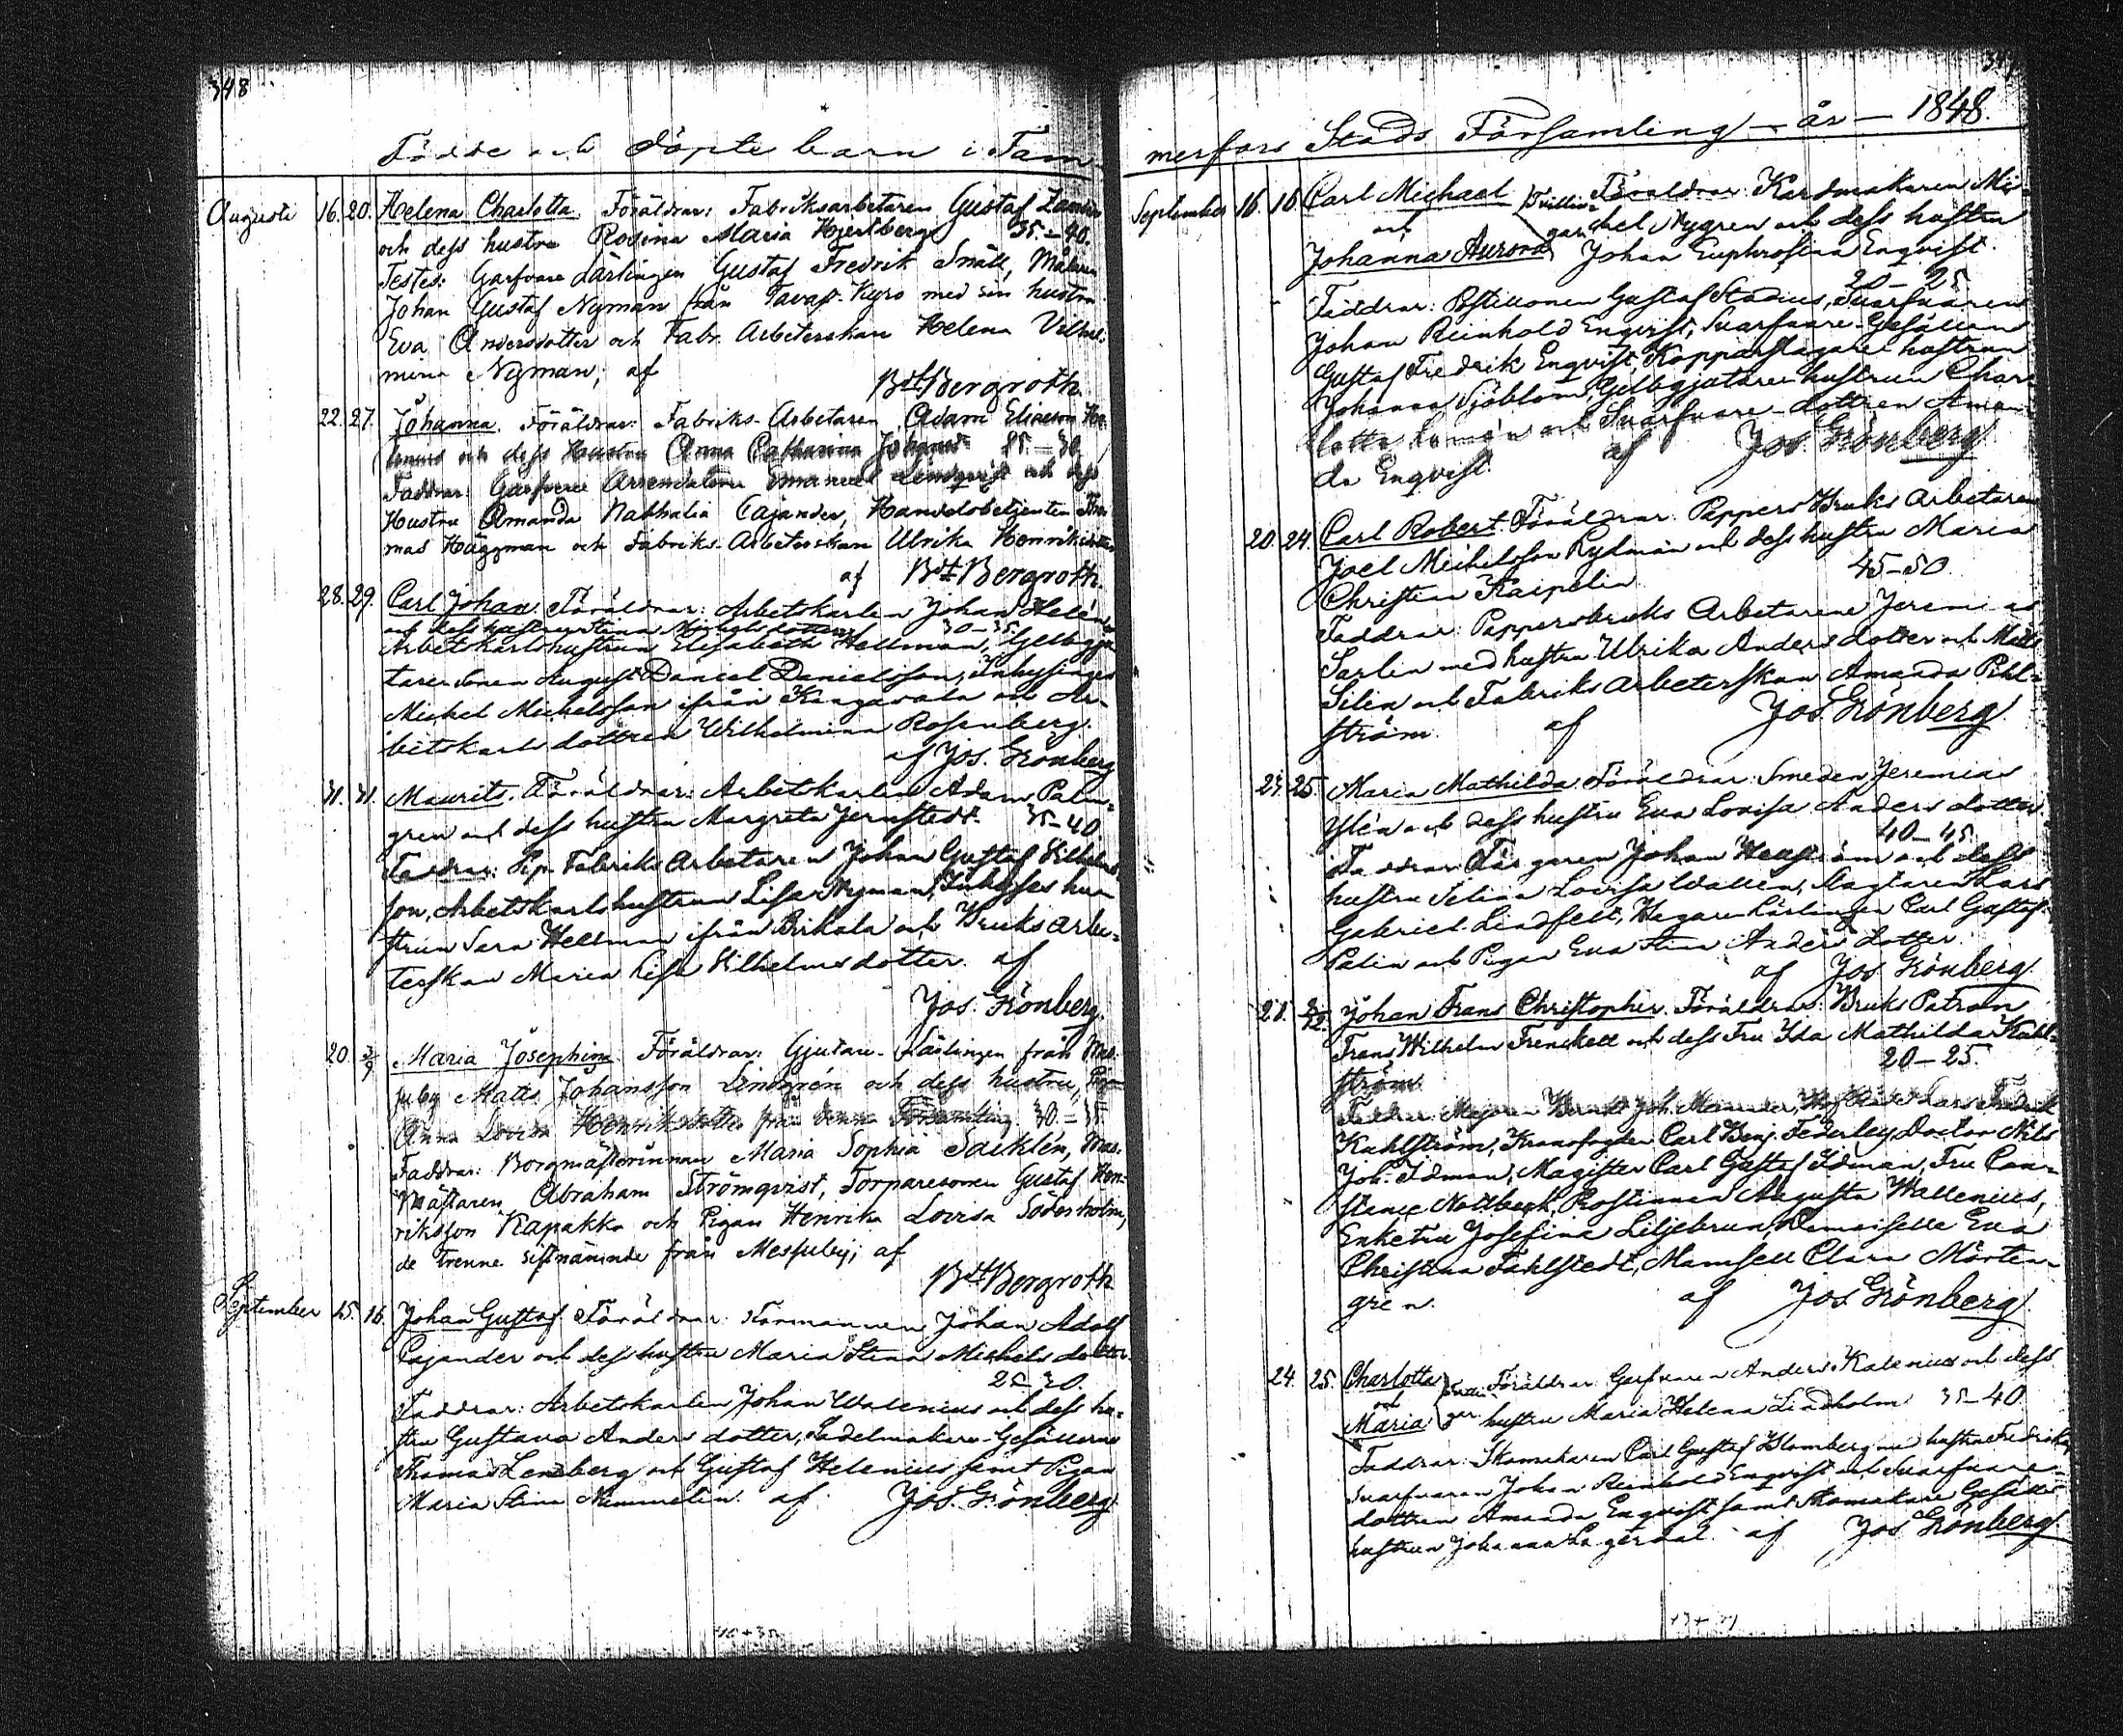 348
Födde och Döpte barn i Tam-
Augusti 16. 20. Helena Charlotta. Föräldrar: Fabriksarbetaren Gustaf
och dess hustru Rosina Maria Hjertberg 35-40.
Testes: Garfvare Lärlingen Gustaf Fredrik Snäll, Målaren
Johan Gustaf Nyman från Tavast-Kyro med sin hustru
Eva Andersdotter och Fabr. Arbeterskan Helena Vilhel-
mina Nyman; af
Bt Bergroth
22. 27. Johanna. Föräldrar: Fabriks-Arbetaren Adam Eliasson
och dess Hustru Anna Catharina 25-30
Faddrar: Garfvare Emanuel Lindqvist och dess
Hustru Amanda Nathalia Cajander, Handelsbetjenten Tho-
mas Häggman och Fabriks-Arbeterskan Ulrika Henriksdotter
af Bt Bergroth.
28. 29. Carl Johan. Föräldrar: Arbetskarlen Johan Helén
och dess hustru Stina Michelsdotter 30-35
Arbetskarlshustrun Elisabeth Hellman, Gelbgju-
tare Sonen August Daniel Danielsson, Inhysingen
Michel Michelsson ifrån Kangasala och Ar-
betskarlsdottren Wilhelmina Rosenberg.
af Jos. Grönberg
31. 31. Maurits. Föräldrar: Arbetskarlen Adam Palm-
gren och dess hustru Margreta Jernstedt. 35-40
Faddrar: Pp. Fabriks Arbetaren Johan Gustaf Wilhelms-
son, Arbetskarlshustrun Lisa Nyman, Inhyses hu-
strun Sara Hellman ifrån Birkala och Bruks arbe-
terskan Maria Lisa Wilhelmsdotter. af
Jos. Grönberg.
20. 3/9 Maria Josephina. Föräldrar: Gjutare-Lärlingen från Mes-
suby Matts Johansson Lindgrén och dess hustru, Pigan
Anna Lovisa Henriksdotter från denna Församling. 30-35
Faddrar: Borgmästerinnan Maria Sophia Sacklén, Mas-
mästaren Abraham Strömqvist, Torparesonen Gustaf Hen-
riksson Kapakka och Pigan Henrika Lovisa Söderholm,
de trenne sistnämnde från Messuby; af
Bt Bergroth
September 15. 16. Johan Gustaf. Föräldrar: Formannen Johan Adolf
Cajander och dess hustru Maria Stina Michelsdotter.
25-30.
Faddrar: Arbetskarlen Johan Walenius och dess hu-
stru Gustava Andersdotter, Sadelmakare-Gesällerne
Thomas Lendberg och Gustaf Helenius samt Pigan
Maria Stina Nummelin. af Jos. Grönberg
merfors Stads Församling - år - 1848.
September 16. 16 Carl Michael Tvillin- Föräldrar: Kardmakaren Mi-
och gar chel Nygren och dess hustru
Johanna Aurora Johan Euphrosina Enqvist.
20-25
Faddrar: Postillionen Gustaf Stadius, Svarfvaren
Johan Reinhold Enqvist, Svarfvare-Gesällen
Gustaf Fredrik Enqvist, Kopparslagare hustrun
Johanna Sjöblom, Gelbgjutaren hustrun Char-
lotta och Svarfvare-dottren Aman-
da Enqvist. af Jos. Grönberg
20. 24. Carl Robert. Föräldrar: Pappers Bruks Arbetaren
Joel Michelsson Rydman och dess hustru Maria
Christina Kaipelin. 45-50.
Faddrar: Pappersbruks Arbetarene Jeremias
Sarlin med hustru Ulrika Andersdotter och Matts
Silen och Fabriks arbeterskan Amanda Pihl-
ström. af Jos. Grönberg
24. 25. Maria Mathilda. Föräldrar: Smeden Jeremias
Ylén och dess hustru Eva Lovisa Andersdotter.
40-45.
Faddrar: Färgaren Johan och dess
hustru Selina Lovisa Wallen, Lars
Gabriel Lindfelt, Carl Gustaf
Palin och Pigan Eva Stina Andersdotter.
af Jos. Grönberg
28. Johan Frans Christopher. Föräldrar: Bruks Patron
Frans Wilhelm Frenckell och dess Fru Ida Mathilda Kahl-
ström 20-25.
Faddrar: Majoren Joh. Lars Fredrik
Kahlström, Kronofogden Carl Benj. Federley, Doctor Nils
Joh. Idman, Magister Carl Gustaf Idman, Fru Con-
stance Nordberg, Prostinnan Augusta Wallenius,
Enkefru Josefina Liljebrun, Demoiselle Eva
Christina Fahlstedt, Mamsell Clara Mörten-
gren. af Jos. Grönberg
24. 25. Charlotta Tvillin- Föräldrar: Garfvaren Anders Kalenius och dess
och
Maria gar hustru Maria Helena Lindholm 35-40.
Faddrar: Skomakaren Carl Gustaf Blomberg med hustru Fredrika,
Svarfvaren Johan Reinhold Enqvist och Svarfvare-
dottren Amanda Enqvist samt Skomakare Gesälls-
hustrun Johanna Lagerdal. af Jos. Grönberg